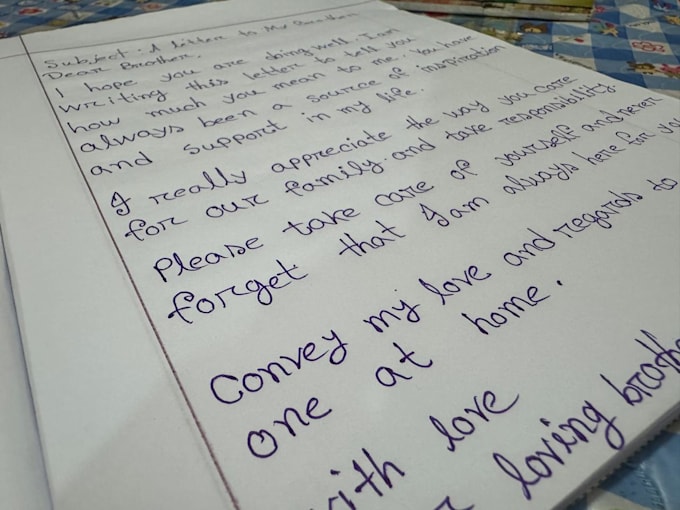 Subject: A letter to My Brother
Dear Brother.
I hope you are doing well. I am
writing this letter to tell you
how much you mean to me. You have
always been a source of inspiration
and support in my life.
I really appreciate the way you care
for our family. and take responsibility.
Please take care of yourself and never
forget that I am always here for you
Convey my love and regards to
one at home.
with love
loving broth